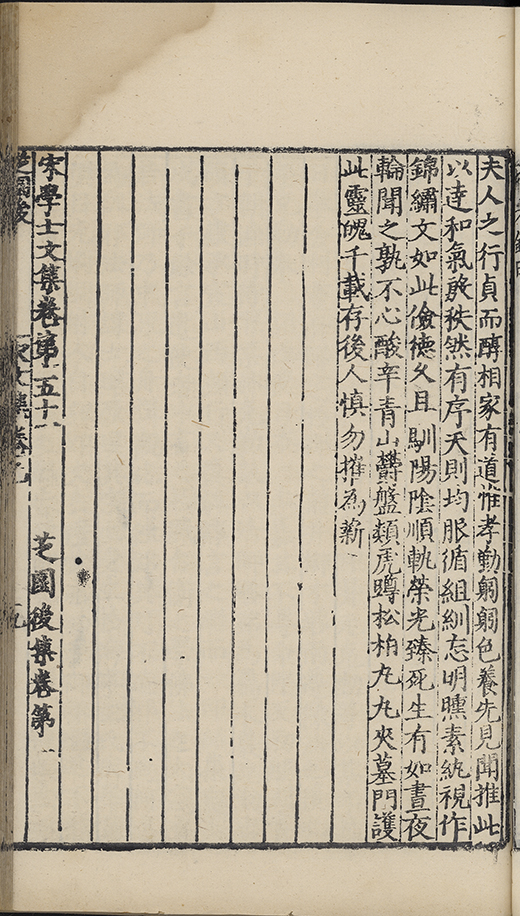 夫人之行貞而醇相家有道惟孝勤躬躬色養先見聞推此
以達和氣敦秩然有序天則均服循組紃忘明曛素紈視作
錦繡文如此儉德久且馴陽陰順軌榮光臻死生有如晝夜
輪聞之孰不心酸辛青山欝盤類虎蹲松柏丸丸夾墓門護
此靈魄千載存後人慎勿摧為薪
宋學士文集卷第五十一 芝園後集卷第一